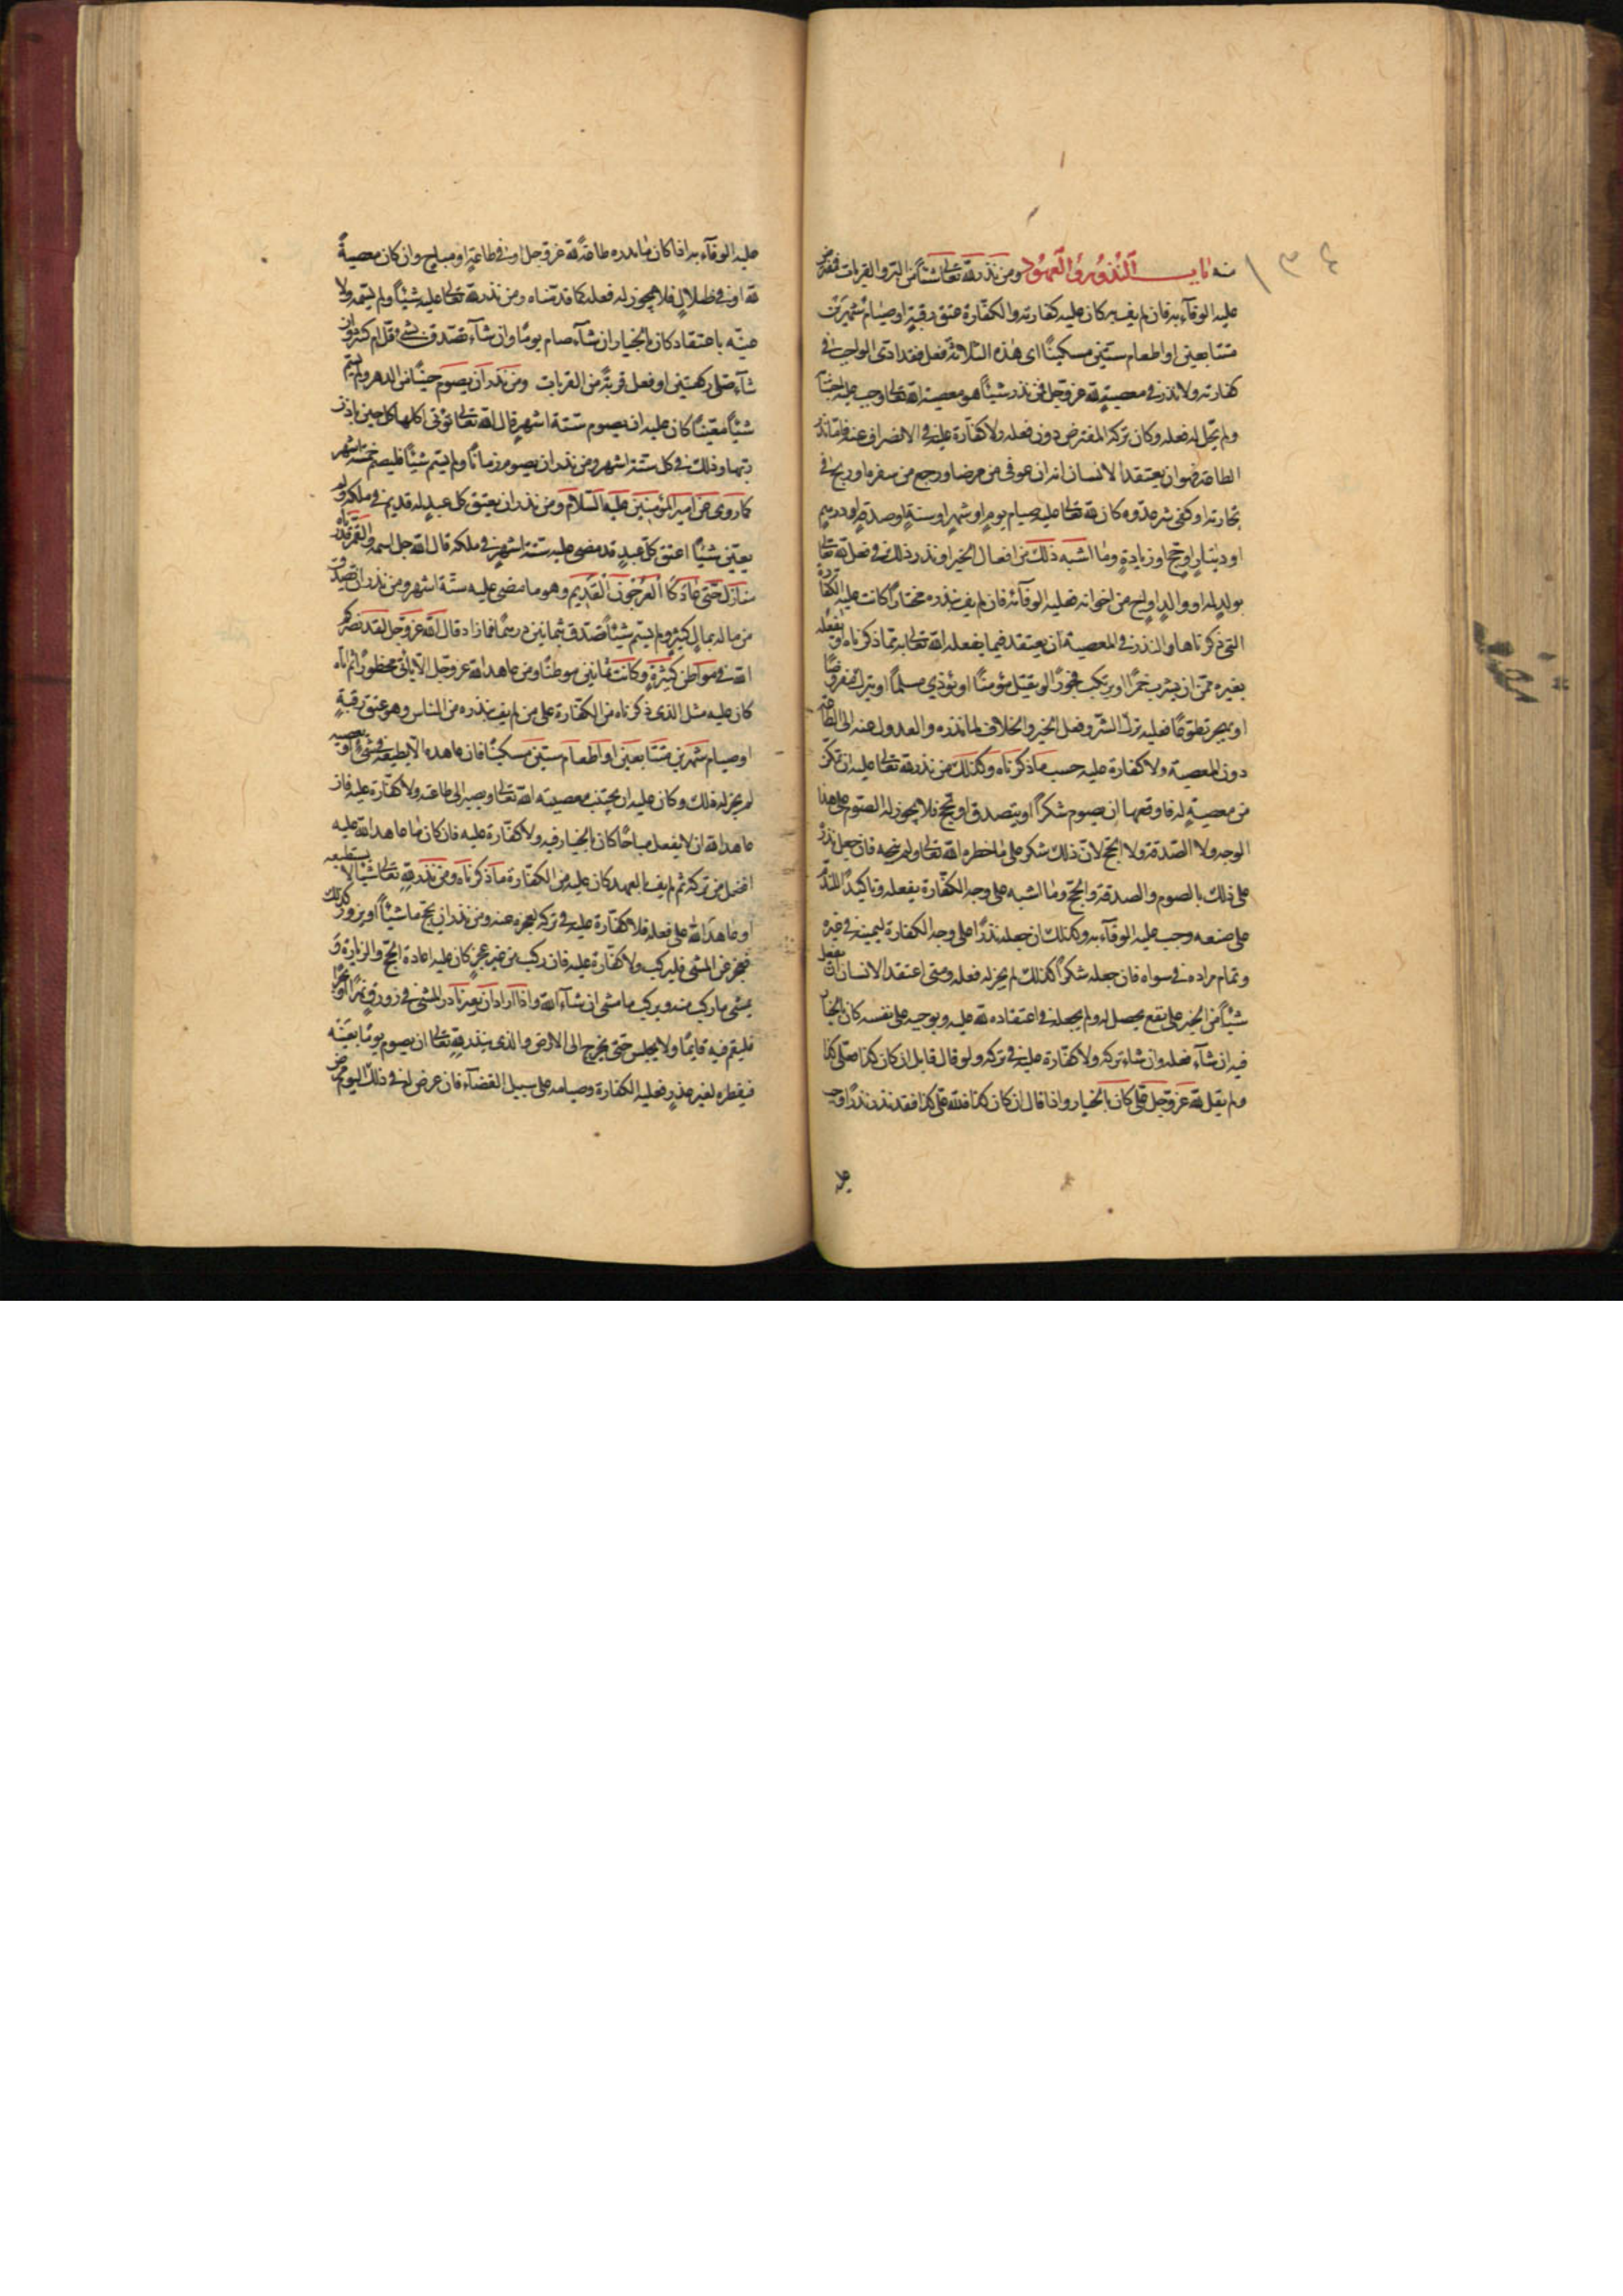 منه باب النذور والعهود ومن نذر لله تعالى شيئاً من البر والقربات ففرض
عليه الوفآء به فان لم يف به كان عليه كفارته والكفارة عتق رقبة او صيام شهرين
متتابعين او اطعام ستين مسكيناً اى هذه الثلاثة فعل فقد ادى الواجب فى
كفارته ولا نذر فى معصية لله عز وجل فمن نذر شيئاً هو معصية لله تعالى وجب عليه اجتنا
ولم يحل له فعله وكان تركه المفترض دون فعله ولا كفارة عليه فى الانصراف عنه فاما نذر
الطاعة فهو ان يعتقد الانسان انه ان عوفى من مرضه او رجع من سفره او ربح فى
تجارته او كفى شر عدوه كان لله تعالى عليه صيام يوم او شهر او سنة او صدقة او درهم
او دينار او حج او زيارة وما اشبه ذلك من افعال الخير او نذر ذلك فى فعل لله تعالى
بولد له او والد او اخ من اخوانه فعليه الوفآء به فان لم يف بنذره مختاراً كانت عليه الكفارة
التى ذكرناها والنذر فى المعصية ان يعتقد فيما يفعله الله تعالى به مما ذكرناه او يفعله
بغيره ممن ان يشرب خمراً او يرتكب فجوراً او يقتل مؤمناً او يؤذي مسلماً او يترك مفروضاً
او يهجر تطوعاً فعليه ترك الشر وفعل الخير والخلاف لما نذره والعدول عنه الى الطاعة
دون المعصية ولا كفارة عليه حسب ما ذكرناه وكذلك من نذر لله تعالى عليه ان تمكن
من معصية له فاوقعها ان يصوم شكراً او يتصدق او يحج فلا يجوز له الصوم على هذا
الوجه ولا الصدقة ولا الحج لان ذلك شكر على ما حظره الله تعالى ولم يبحه فان جعل نذره
على ذلك بالصوم والصدقة والحج وما اشبه على وجه الكفارة يفعله وتاكيد النذر
على صنعه وجب عليه الوفآء به وكذلك ان جعله نذراً على وجه الكفارة ليمينه فى غيره
وتمام مراده فى سواه فان جعله شكراً كذلك لم يجز له فعله ومتى اعتقد الانسان ان يفعل
شيئاً من الخير على نفع يحصل له ولم يجعله فى اعتقاده لله عليه ويوجبه على نفسه كان بالخيار
فيه ان شآء فعله وان شاء تركه ولا كفارة عليه فى تركه ولو قال قايل ان كان كذا فعلى كذا
ولم يقل لله عز وجل على كان بالخيار واذا قال ان كان كذا فلله على كذا فقد نذر نذراً وجب
عليه
عليه الوفآء به اذا كان ما نذره طاعة لله عز وجل او فى طاعة او مباح وان كان معصية
لله او فى ضلال فلا يجوز له فعله كما قدمناه ومن نذر لله تعالى عليه شيئاً ولم يسمه ولا
عينه باعتقاد كان بالخيار ان شآء صام يوماً وان شآء تصدق بشئ قل ام كثر وان
شآء صلى ركعتين او فعل قربة من القربات ومن نذر ان يصوم حيناً من الدهر ولم يسم
شيئاً معيناً كان عليه ان يصوم ستة اشهر قال الله تعالى تؤتى اكلها كل حين باذن
ربها وذلك فى كل ستة اشهر ومن نذر ان يصوم زماناً ولم يسم شيئاً فليصم خمسة اشهر
كما روى عن امير المؤمنين عليه السلام ومن نذر ان يعتق كل عبد له قديم فى ملكه ولم
يعين شيئاً اعتق كل عبد قد مضى عليه ستة اشهر فى ملكه قال الله جل اسمه والقمر قدرناه
منازل حتى عاد كالعرجون القديم وهو ما مضى عليه ستة اشهر ومن نذر ان يتصدق
من ماله بمال كثير ولم يسم شيئاً تصدق بثمانين درهماً فما زاد قال الله عز وجل لقد نصركم
الله فى مواطن كثيرة وكانت ثمانين موطناً ومن عاهد الله عز وجل الا ياتى محظوراً ثم اتاه
كان عليه مثل الذى ذكرناه من الكفارة على من لم يف بنذره من الناس وهو عتق رقبة
او صيام شهرين متتابعين او اطعام ستين مسكيناً فان عاهده الا يطيعه فى شئ او يعصيه
لم يجز له ذلك وكان عليه ان يجتنب معصية الله تعالى ويصير الى طاعته ولا كفارة عليه فان
عاهد الله ان لا يفعل مباحاً كان بالخيار فيه ولا كفارة عليه فان كان ما عاهد الله عليه
افضل من تركه ثم لم يف بالعهد كان عليه من الكفارة ما ذكرناه ومن نذر لله تعالى شيئاً لا يستطيعه
او عاهد الله على فعله فلا كفارة عليه فى تركه لعجزه عنه ومن نذر ان يحج ماشياً او يزور كذلك
فعجز عن المشى فليركب ولا كفارة عليه فان ركب من غير عجز كان عليه اعادة الحج والزيارة و
يمشى ما ركب منه ويركب ما مشى ان شآء الله واذا اراد ان يعبر ناذر المشى فى زورق نهراً او بحراً
فليقم فيه قايماً ولا يجلس حتى يخرج الى الارض والذى ينذر لله تعالى ان يصوم يوماً بعينه
فيفطره لغير عذر فعليه الكفارة وصيامه على سبيل القضآء فان عرض له فى ذلك اليوم مرض